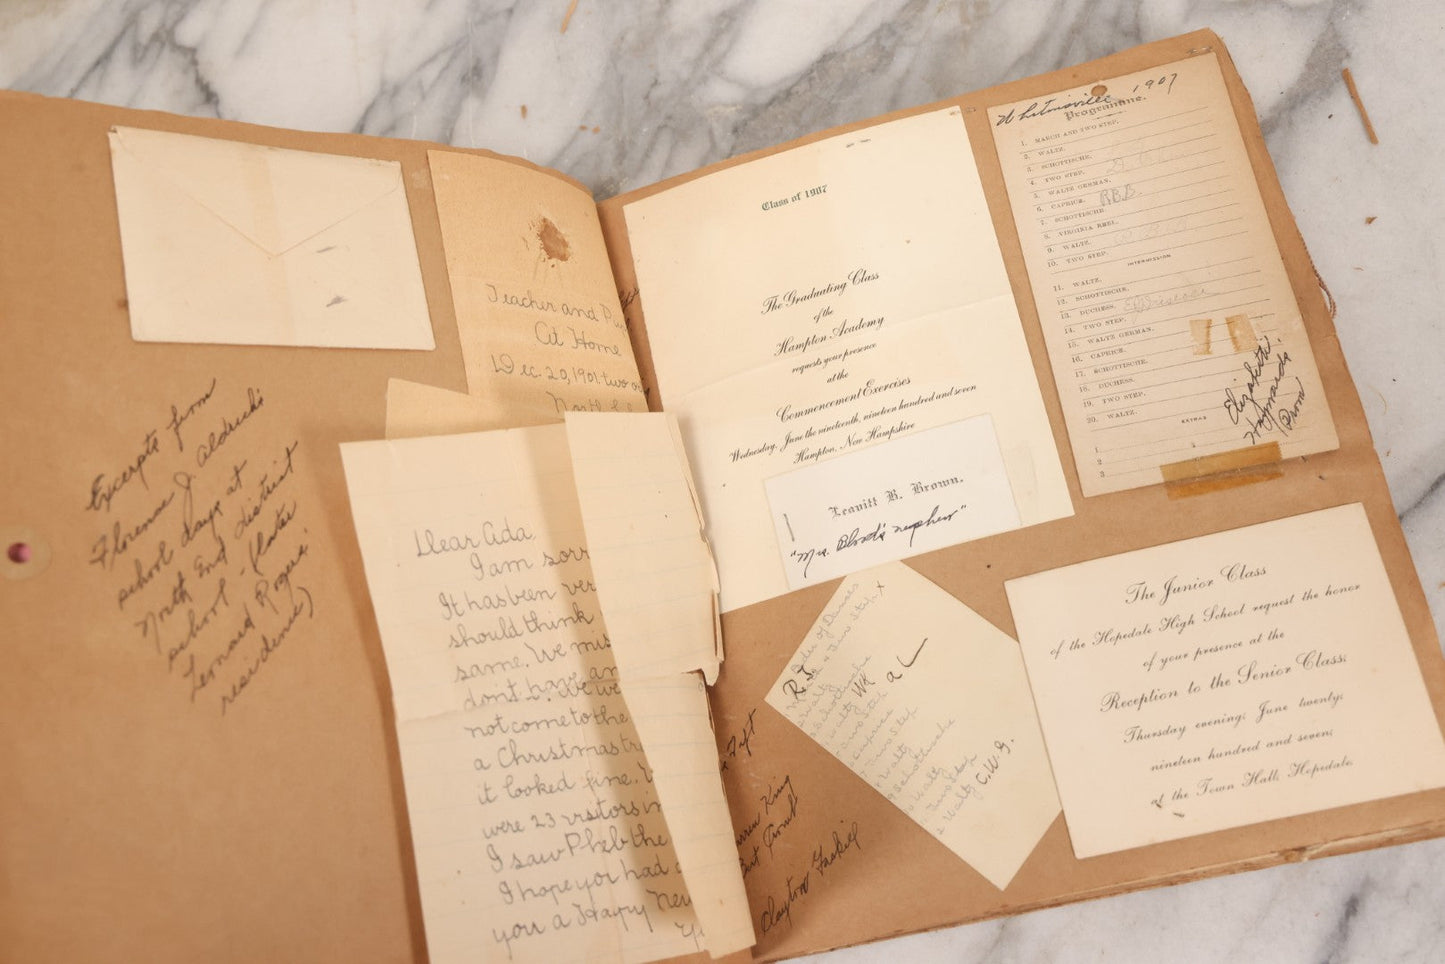 Excerpts from
Florence J. Aldrich's
school days at
North End district
school - (later
Leonard Rogers'
residence)
Teacher and
At Home
Dec. 20, 1901. two
Dear Ada,
I am sorr
It has been ver
should think
same. We mis
dont have an
not come to the
a Christmas tr
it looked fine.
were 23 visitors in
I saw Pheb the
I hope you had a
you a Happy New
Class of 1907
The Graduating Class
of the
Hampton Academy
requests your presence
at the
Commencement Exercises
Wednesday, June the nineteenth, nineteen hundred and seven
Hampton, New Hampshire
Leavitt B. Brown.
"Mrs. Blood's nephew"
Whitinsville 1907
Programme.
1. MARCH AND TWO STEP.
2. WALTZ.
3. SCHOTTISCHE.
4. TWO STEP.
5. WALTZ GERMAN.
6. CAPRICE. RBB.
7. SCHOTTISCHE.
8. VIRGINIA REEL.
9. WALTZ.
10. TWO STEP.
INTERMISSION
11. WALTZ.
12. SCHOTTISCHE.
13. DUCHESS.
14. TWO STEP.
15. WALTZ GERMAN.
16. CAPRICE.
17. SCHOTTISCHE.
18. DUCHESS.
19. TWO STEP.
20. WALTZ.
EXTRAS
1
2
3
Elizabeth
Haywards
Prom
Order of Dances
& Two Step. X
R. T.
Waltz
Schottische
Waltz WK
Two Step a L
Caprice
Two Step
Waltz
Schottische
Waltz
Two Step
Waltz C.W.G.
Taft
King
Bert
Clayton Gaskill
The Junior Class
of the Hopedale High School request the honor
of your presence at the
Reception to the Senior Class;
Thursday evening, June twenty;
nineteen hundred and seven;
at the Town Hall, Hopedale.